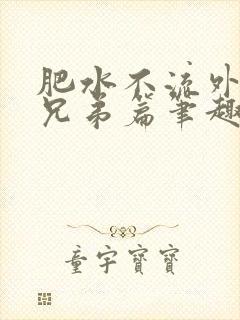 肥水不流外
兄弟篇笔趣
童宇寶寶